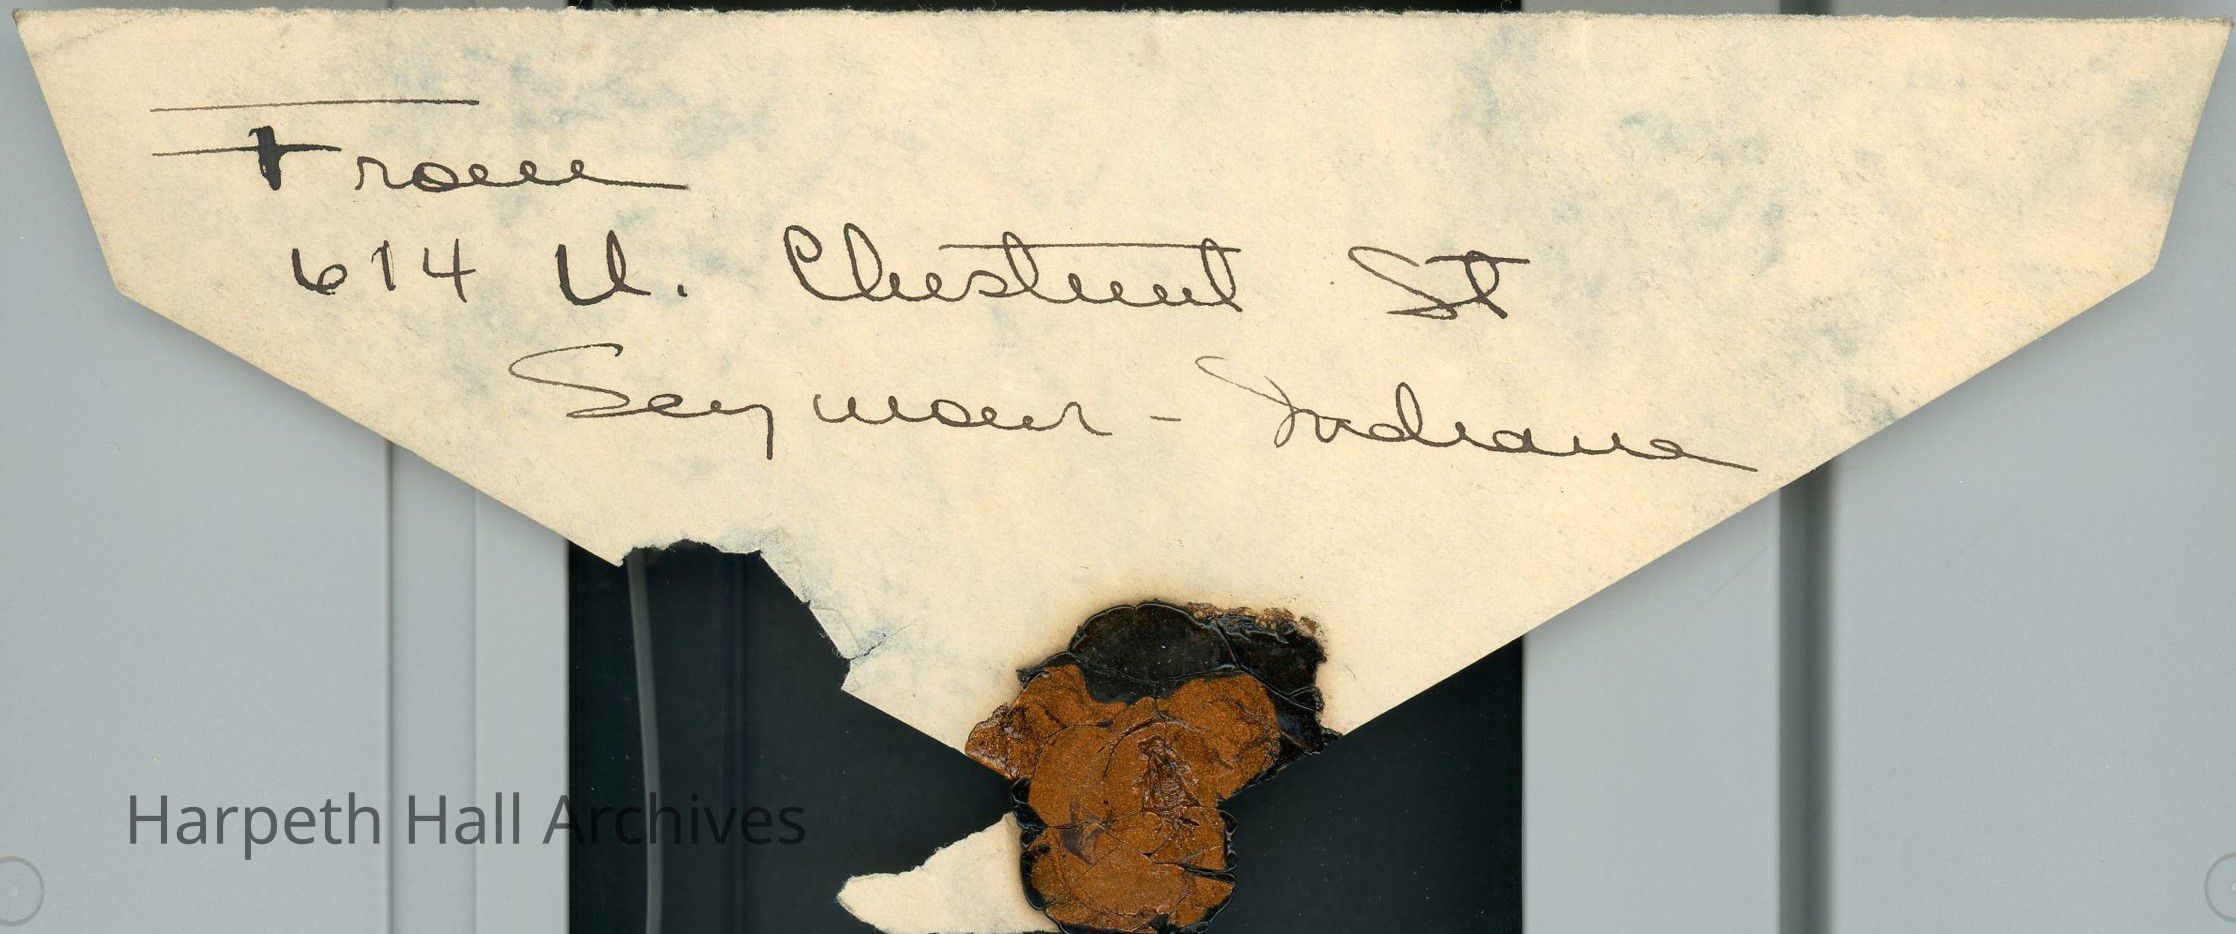 From
614 N. Chestnut St
Seymour - Indiana
Harpeth Hall Archives